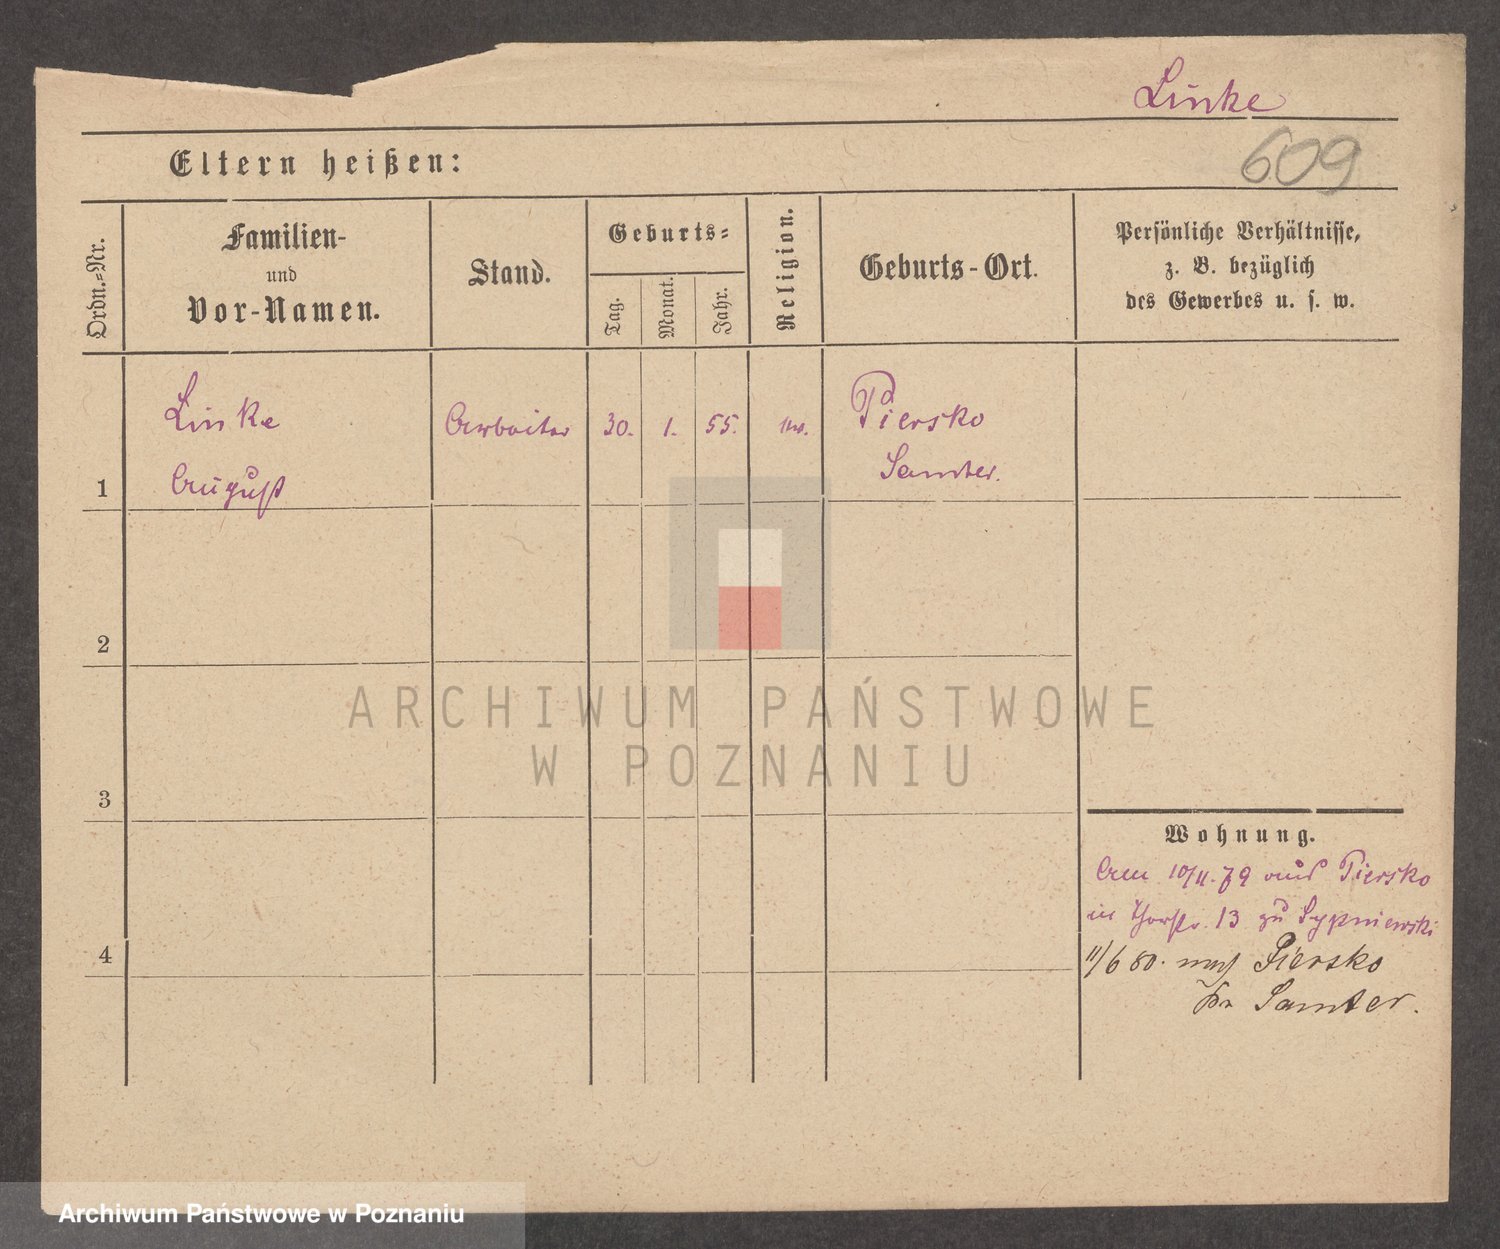 Linke
609
Eltern heißen:
Ordn.-Nr.
Familien-
und
Vor-Namen.
Stand.
Geburts-
Tag.
Monat.
Jahr.
Religion.
Geburts-Ort.
Persönliche Verhältnisse,
z. B. bezüglich
des Gewerbes u. s. w.
Linke Arbeiter 30. 1. 55. Piersko
1 August Samter.
2
3
4
Wohnung.
10/11.79 aus Piersko
in 13 zu Sypniewski
11/6 80. nach Piersko
Samter.
ARCHIWUM PAŃSTWOWE
W POZNANIU
Archiwum Państwowe w Poznaniu